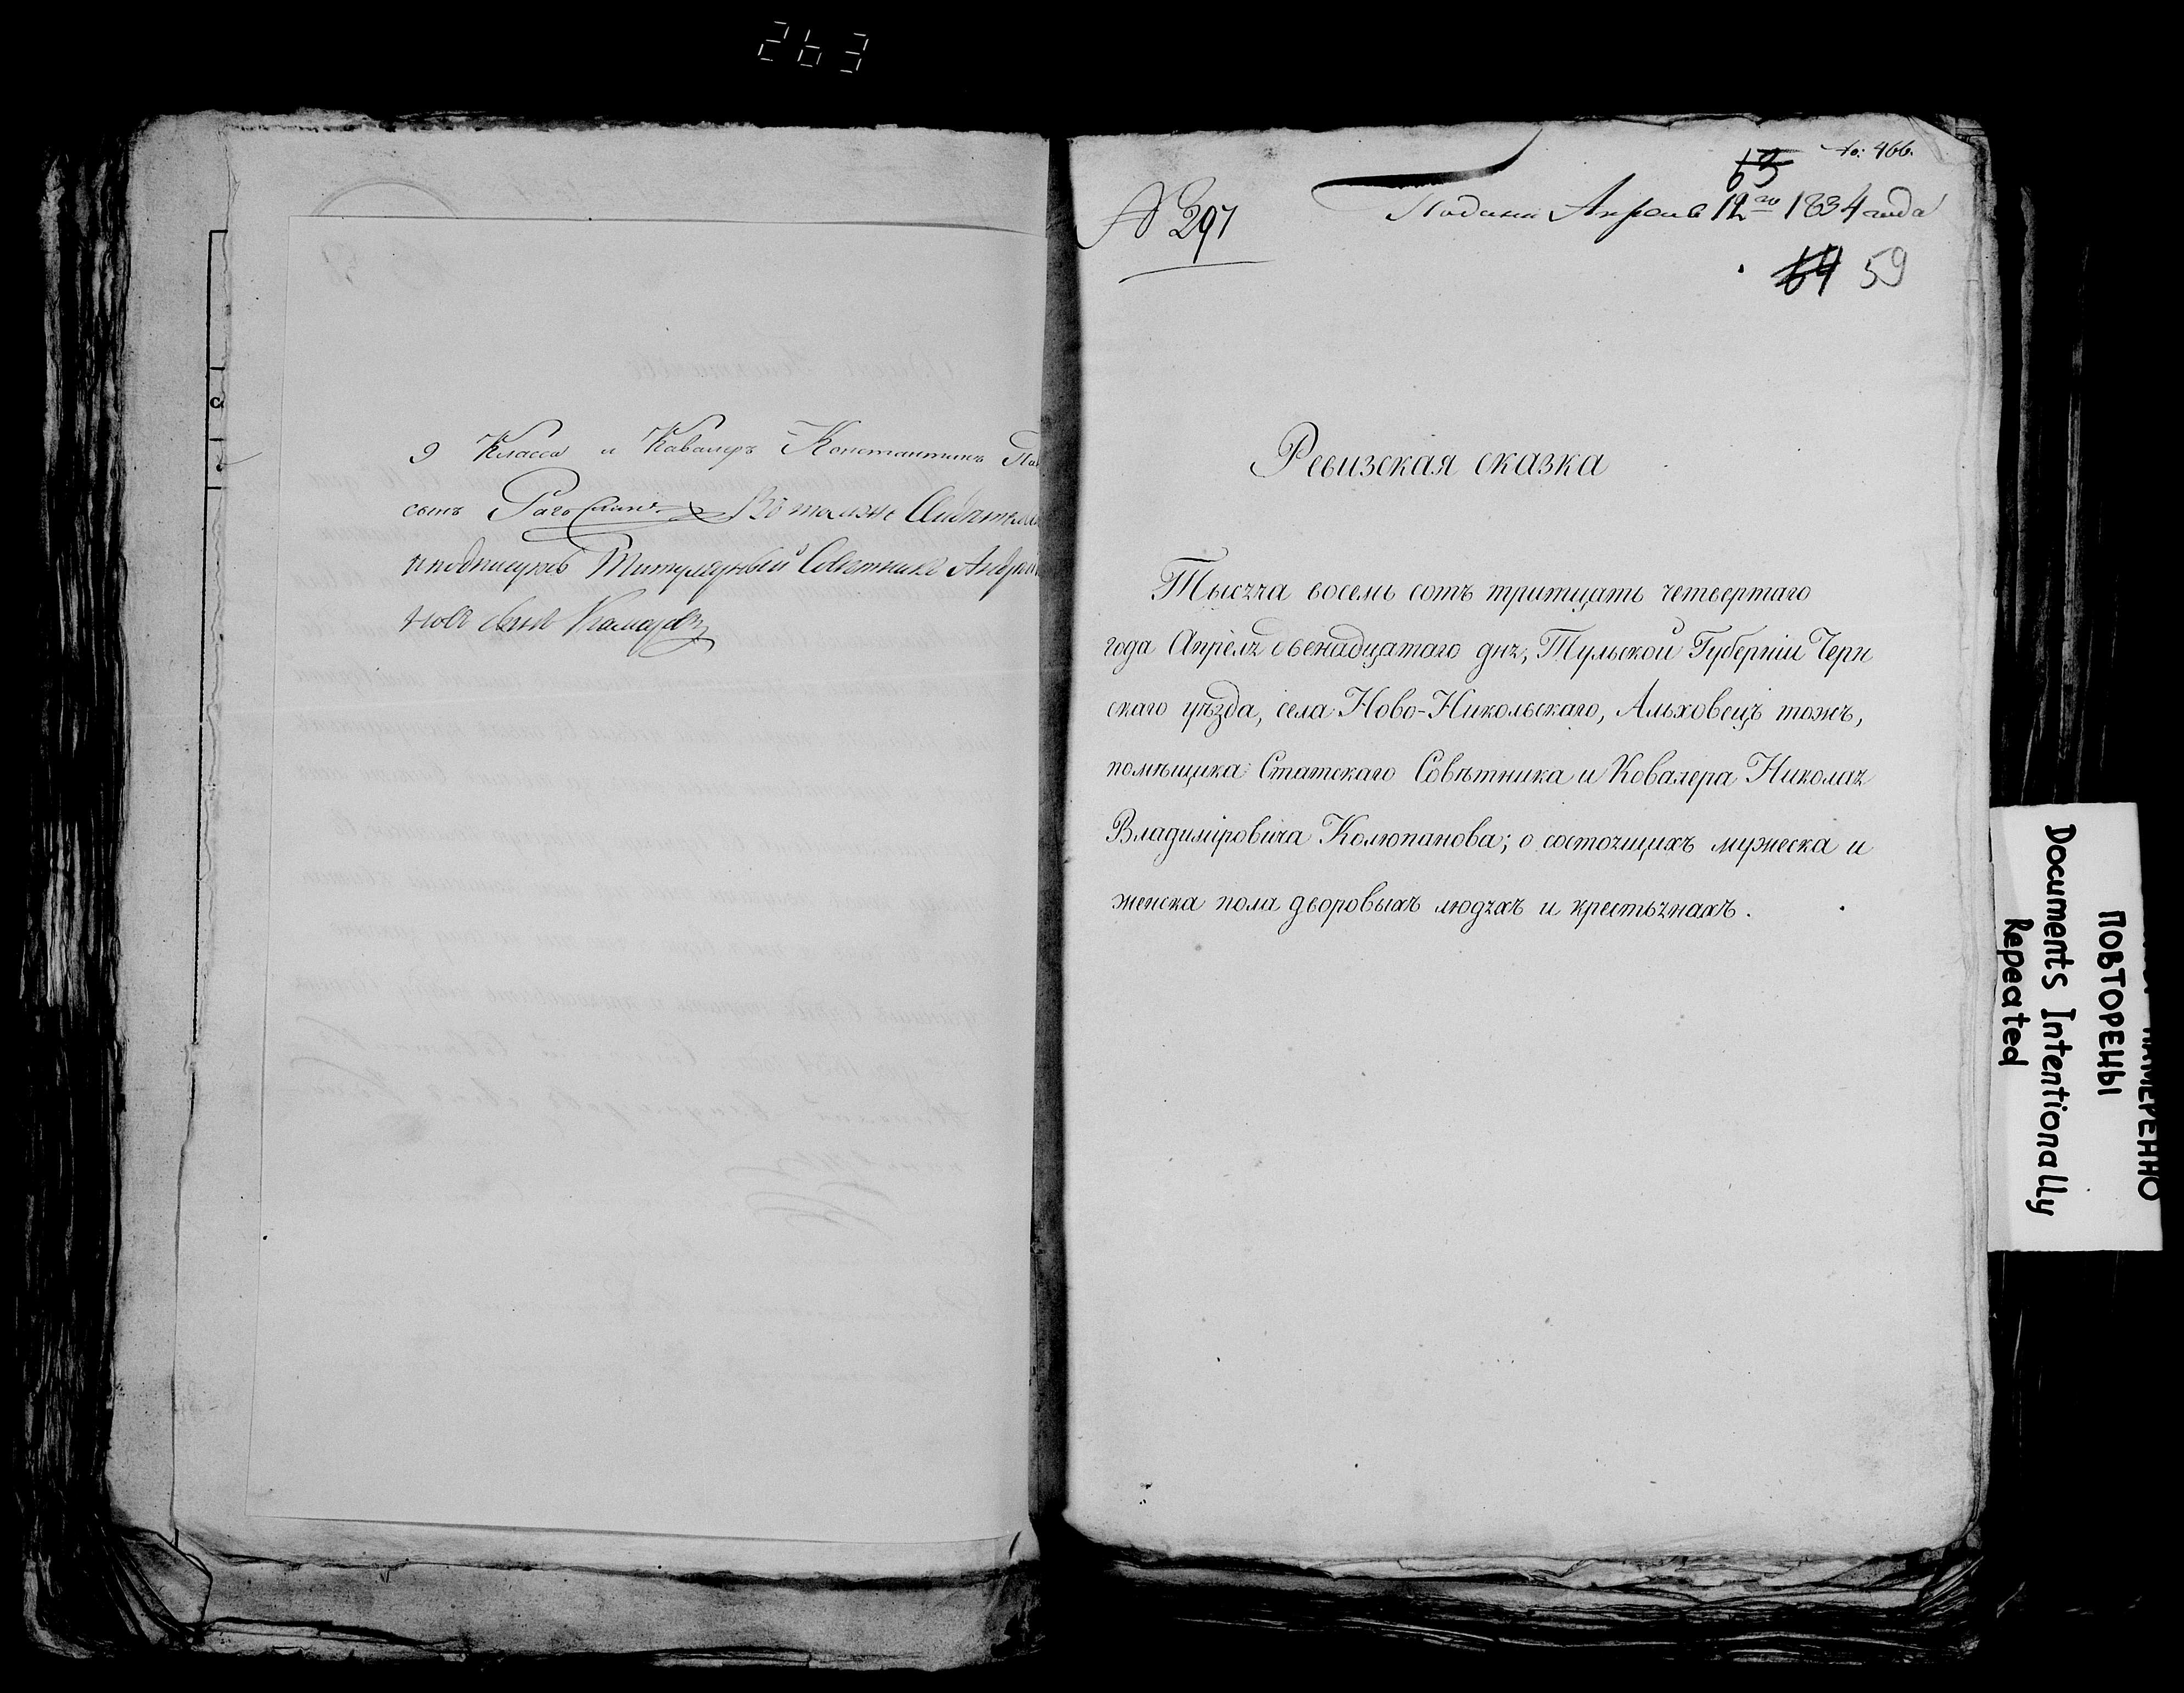 263
9 Класса и Кавалеръ Константинъ
сынъ Въ томже
подписуюсь Титулярный Советникъ
новъ сынъ
№ 297
63
466.
Подана Апреля 12го 1834 года
64 59
Ревизская сказка
Тысяча восемь сотъ тритцать четвертаго
года Апреля двенадцатаго дня, Тульской Губерніи Черн
скаго уѣзда, села Ново-Никольскаго, Альховецъ тожъ,
помѣщика Статскаго Совѣтника и Ковалера Николая
Владиміровича Колюпанова; о состоящихъ мужеска и
женска пола дворовыхъ людяхъ и крестьянахъ.
НАМЕРЕННО
ПОВТОРЕНЫ
Documents Intentionally
Repeated